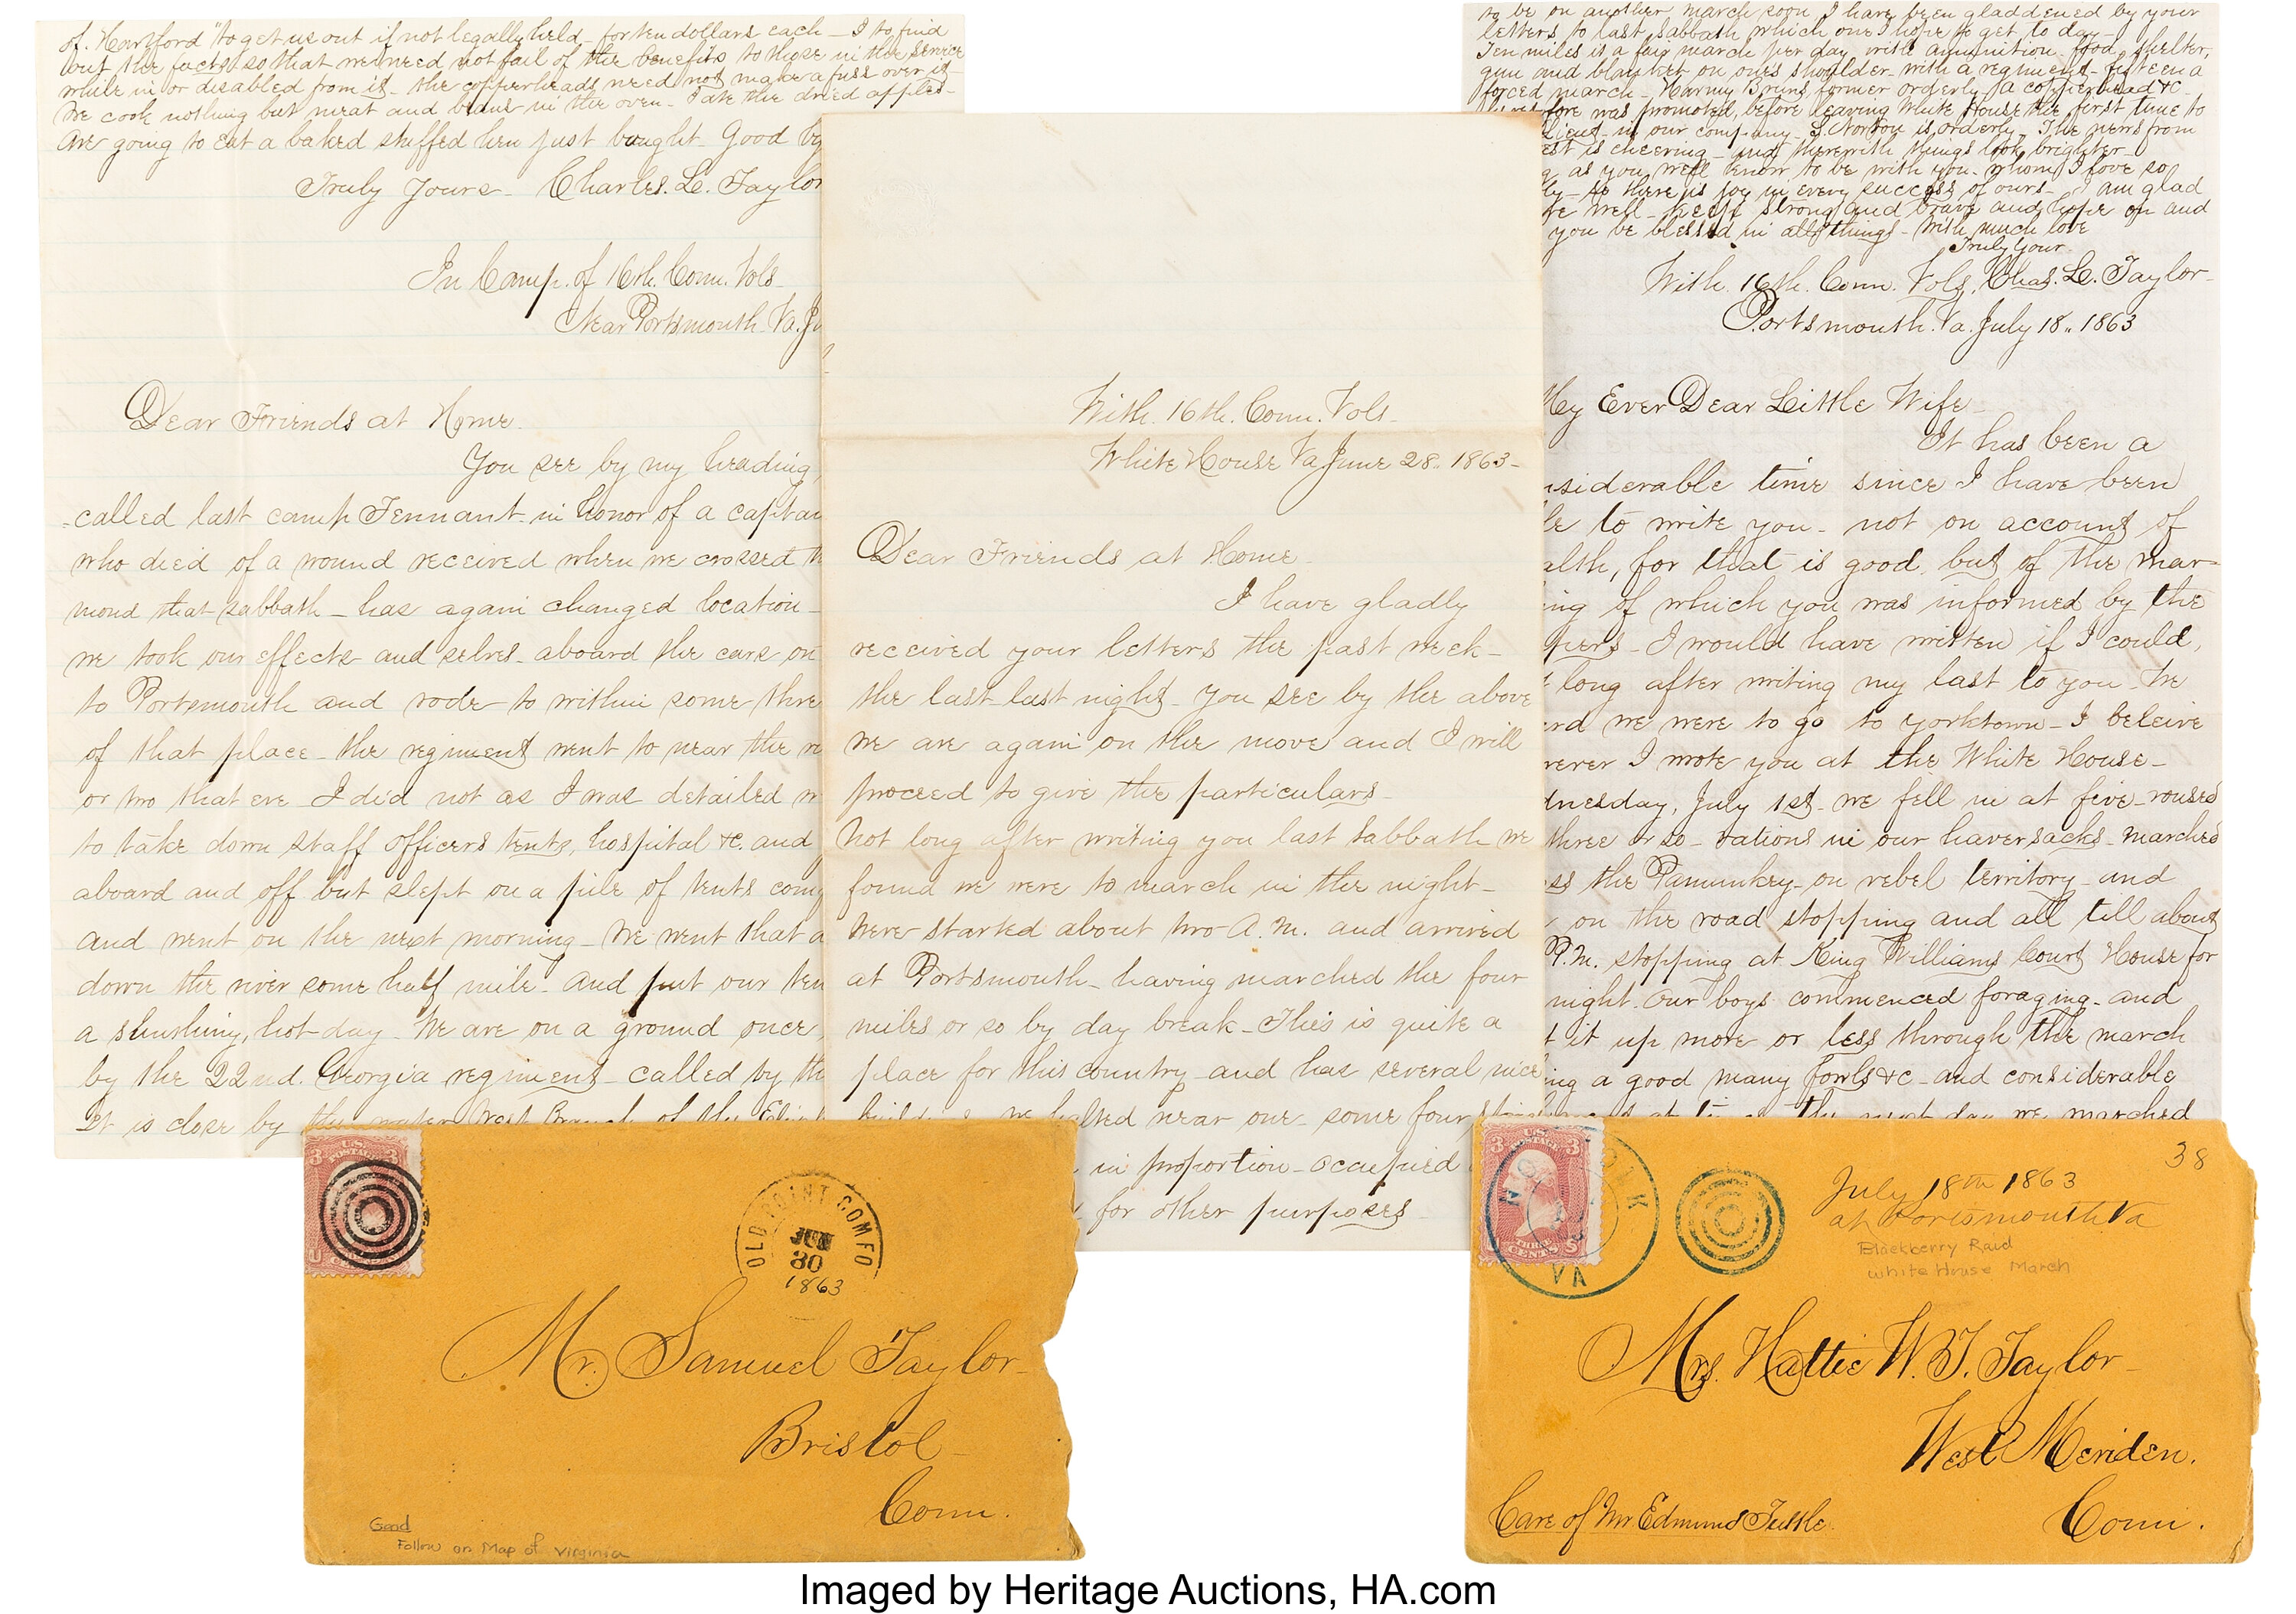 of. Hartford "to get us out if not legally held - for ten dollars each - I to find
out the facts so that we need not fail of the benefits to those in the service
while in or disabled from it - the copperheads need not make a fuss over it -
We cook nothing but meat and beans in the oven - I ate the dried apples -
are going to eat a baked stuffed hen just bought. Good by
Truly Yours - Charles. L. Taylor
In Camp. of 16th. Conn. Vols -
Near Portsmouth. Va. Ju
Dear Friends at Home -
You see by my heading,
called last camp Tennant - in honor of a captai
who died of a wound received when we crossed th
mond that sabbath - has again changed location -
we took our effects and selves - aboard the cars on
to Portsmouth and rode to within some thre
of that place - the regiment went to near the
or two that eve - I did not as I was detailed
to take down staff officers tents, hospital &c. and
aboard and off but slept on a pile of tents
and went on the next morning - We went that a
down the river some half mile - and put our ten
a hot day - We are on a ground once
by the 22nd. Georgia regiment - called by th
It is close by the water West Branch of the
With. 16th. Conn. Vols -
White House Va June 28. 1863 -
Dear Friends at Home -
I have gladly
received your letters the past week -
the last last night - You see by the above
we are again on the move and I will
proceed to give the particulars -
Not long after writing you last sabbath we
found we were to march in the night -
Were started about two A.M. and arrived
at Portsmouth - having marched the four
miles or so by day break - This is quite a
place for this country - and has several nice
we halted near one - some four
in proportion - occupied
for other purposes
to be on another march soon I have been gladdened by your
letters to last sabbath which one I hope to get to day -
Ten miles is a fair march per day with amunition - food, shelter,
gun and blanket on our's shoulder - with a regiment - fifteen a
forced march - former orderly (a copperhead &c -
fore was promoted, before leaving White House the first time to
Lieut - in our company - S. Norton is orderly - The news from
est is cheering - and therewith things look brighter -
as you well know to be with you - whom I love so
ly - so there is joy in every success of ours - I am glad
re well - keep strong and brave and hope on and
you be blessed in all things - With much love
Truly Your -
With. 16th. Conn. Vols. Chas. L. Taylor -
Portsmouth. Va. July 18.. 1863
My Ever Dear Little Wife -
It has been a
nsiderable time since I have been
le to write you - not on account of
alth, for that is good. but of the mar-
ing of which you was informed by the
pers - I would have written if I could,
t long after writing my last to you - We
rd we were to go to Yorktown - I beleive
rever I wrote you at the White House -
dnesday, July 1st - we fell in at five - roused
three or so - rations in our haversacks - marched
ss the Pamunkey - on rebel territory - and
on the road stopping and all till about
P.M. stopping at King Williams Court House for
night. Our boys commenced foraging - and
t it up more or less through the march
ing a good many fowls &c - and considerable
the next day we marched
3 U.S. POSTAGE 3
OLD POINT COMFO
JUN
30
1863
Mr. Samuel Taylor -
Bristol -
Conn.
Good
Follow on Map of Virginia
3 U.S. POSTAGE 3
THREE CENTS
VA
38
July 18th 1863
at Portsmouth Va
Blackberry Raid
White House March
Mrs. Hattie W. T. Taylor -
West Meriden.
Care of Mr. Edmund Tuttle.
Conn.
Imaged by Heritage Auctions, HA.com